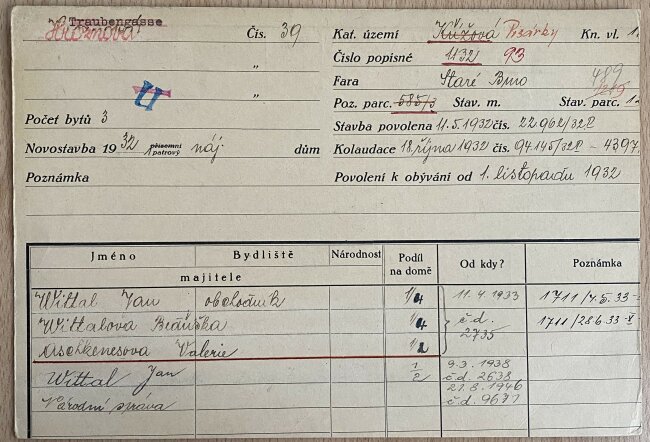 Traubengasse
Hroznová Čís. 39
"
"
Počet bytů 3
Novostavba 1932 1 přízemní patrový náj. dům
Poznámka
Kat. území Křížová Pisárky Kn. vl. 1
Číslo popisné 1132 93
Fara Staré Brno 489
Poz. parc. 585/3 Stav. m. Stav. parc. 1
Stavba povolena 11.5.1932 čís. 22962/32
Kolaudace 18. října 1932 čís. 94145/32 - 4397
Povolení k obývání od 1. listopadu 1932
Jméno Bydliště Národnost Podíl na domě Od kdy? Poznámka
majitele
Wittal Jan obchodník 1/4 11.4.1933 1711/7.5.33
Wittalová 1/4 č.d. 2735 1711/28.6.33
Aschkenesova Valerie 1/2
Wittal Jan 1/2 9.3.1938 č.d. 2638
Národní správa 21.8.1946 č.d. 9671